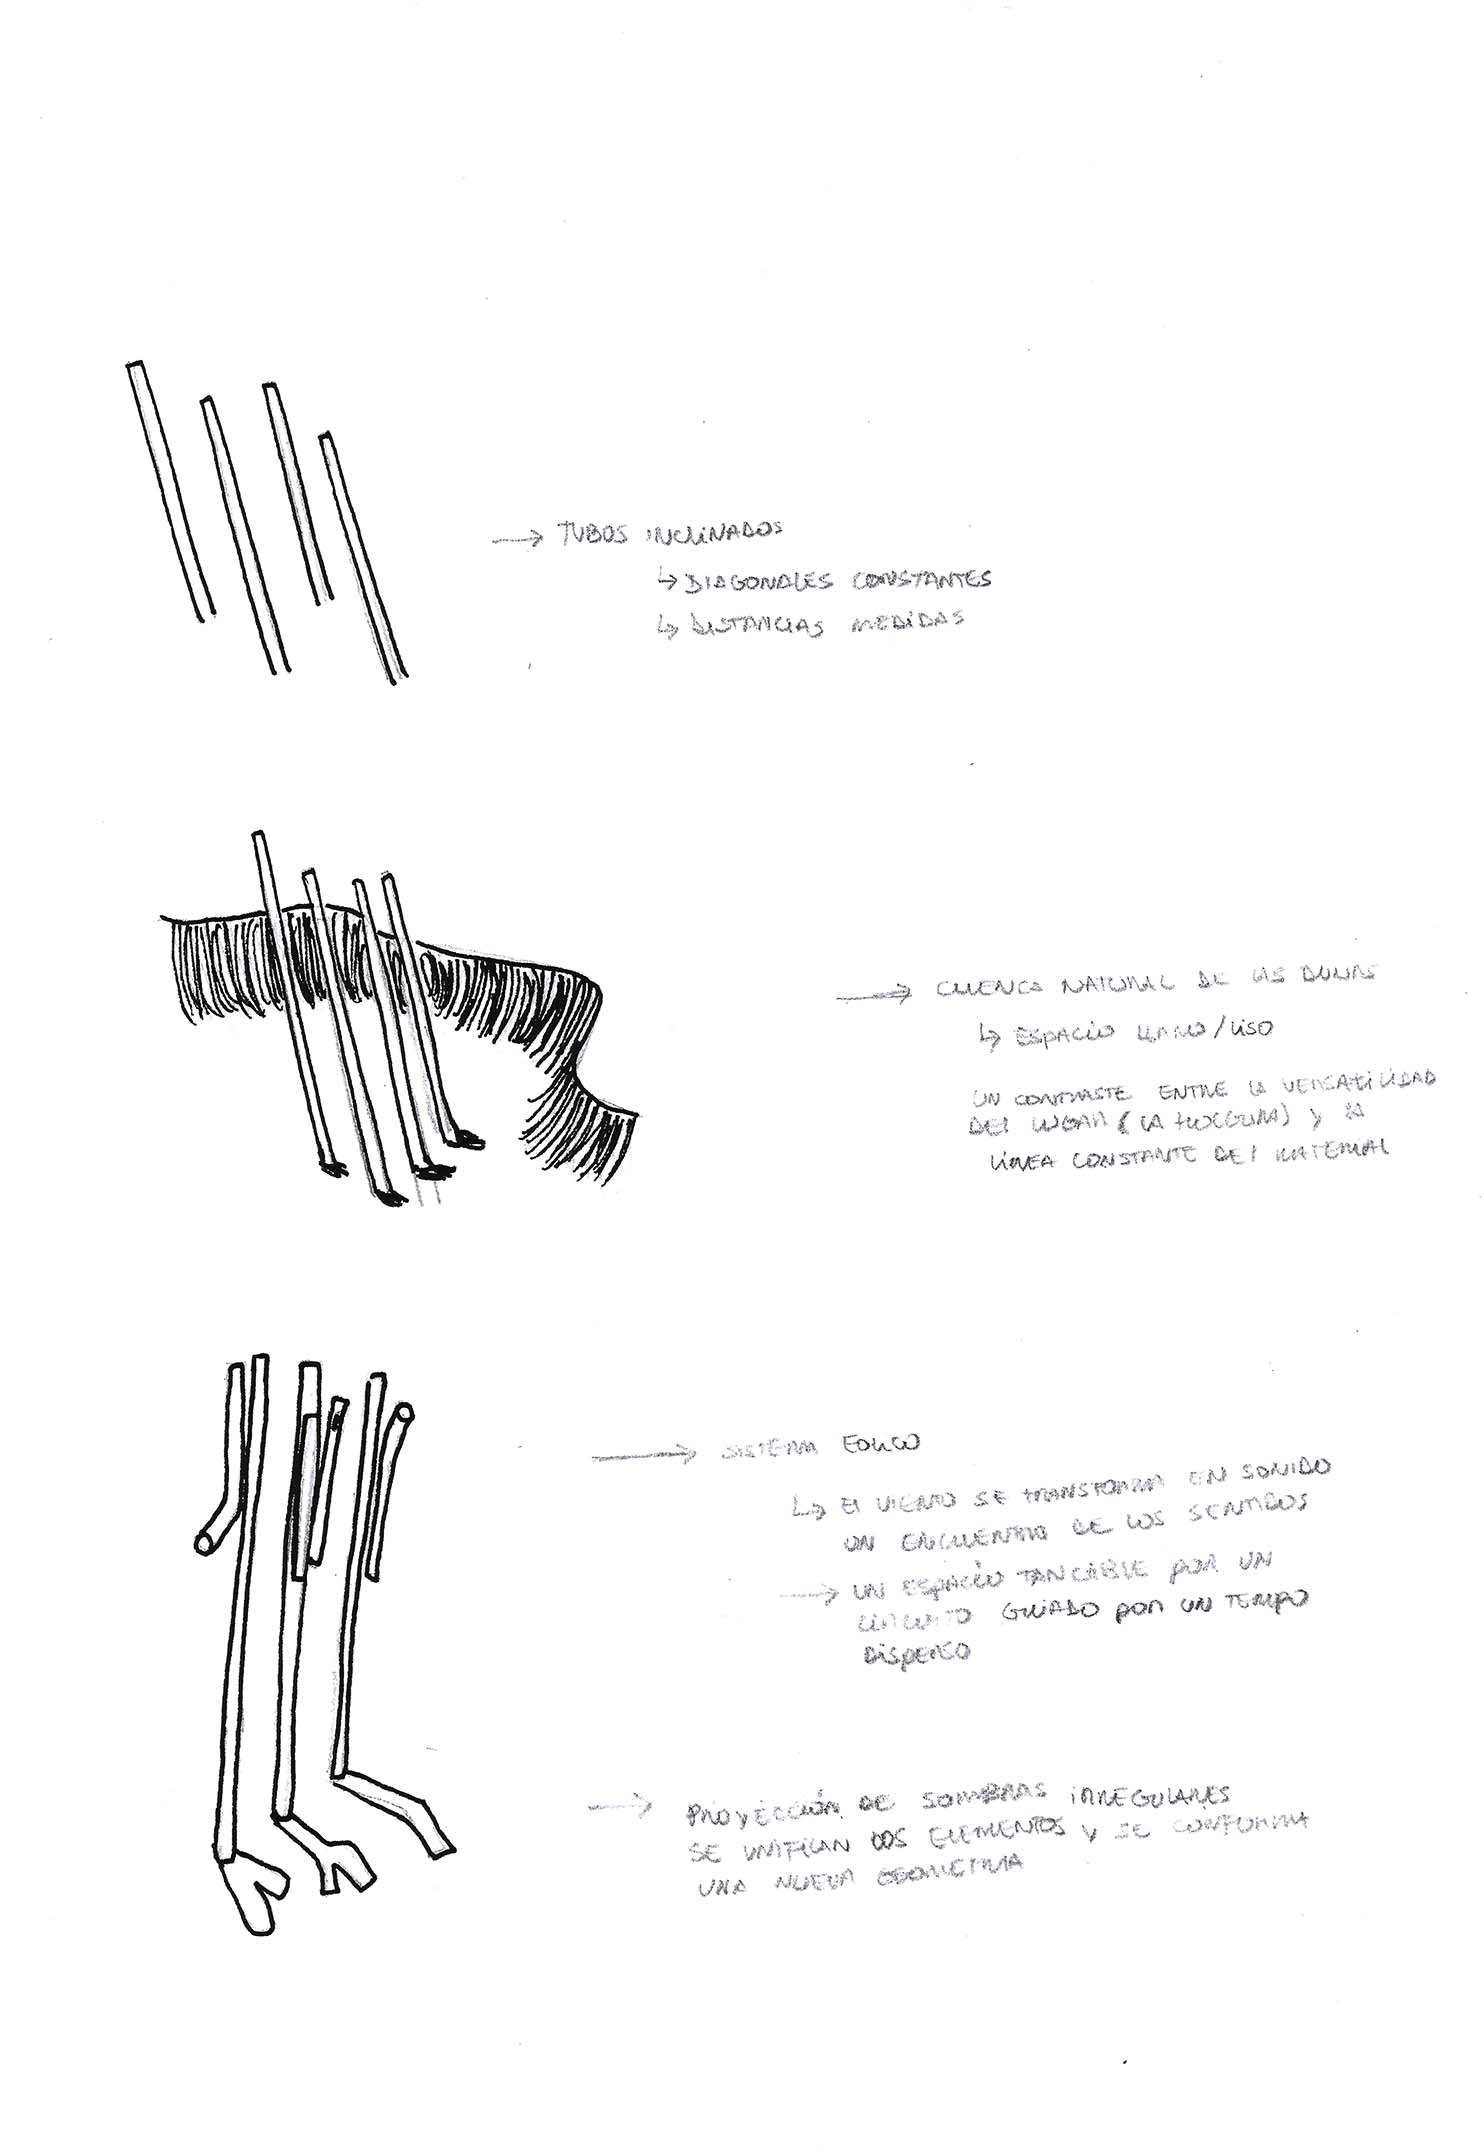 → TUBOS INCLINADOS
↳ DIAGONALES CONSTANTES
↳ DISTANCIAS MEDIDAS
→ CUENCA NATURAL DE LAS DUNAS
↳ ESPACIO LLANO/LISO
UN CONTRASTE ENTRE LA VERSATILIDAD
DEL LUGAR (LA TEXTURA) Y LA
LÍNEA CONSTANTE DEL MATERIAL
→ SISTEMA EOLICO
↳ El VIENTO SE TRANSFORMA EN SONIDO
UN ENCUENTRO DE LOS SENTIDOS
→ UN ESPACIO TANGIBLE POR UN
CIRCUITO GUIADO POR UN TEMPO
DISPERSO
→ PROYECCIÓN DE SOMBRAS IRREGULARES
SE UNIFICAN DOS ELEMENTOS Y SE CONFORMA
UNA NUEVA GEOMETRIA